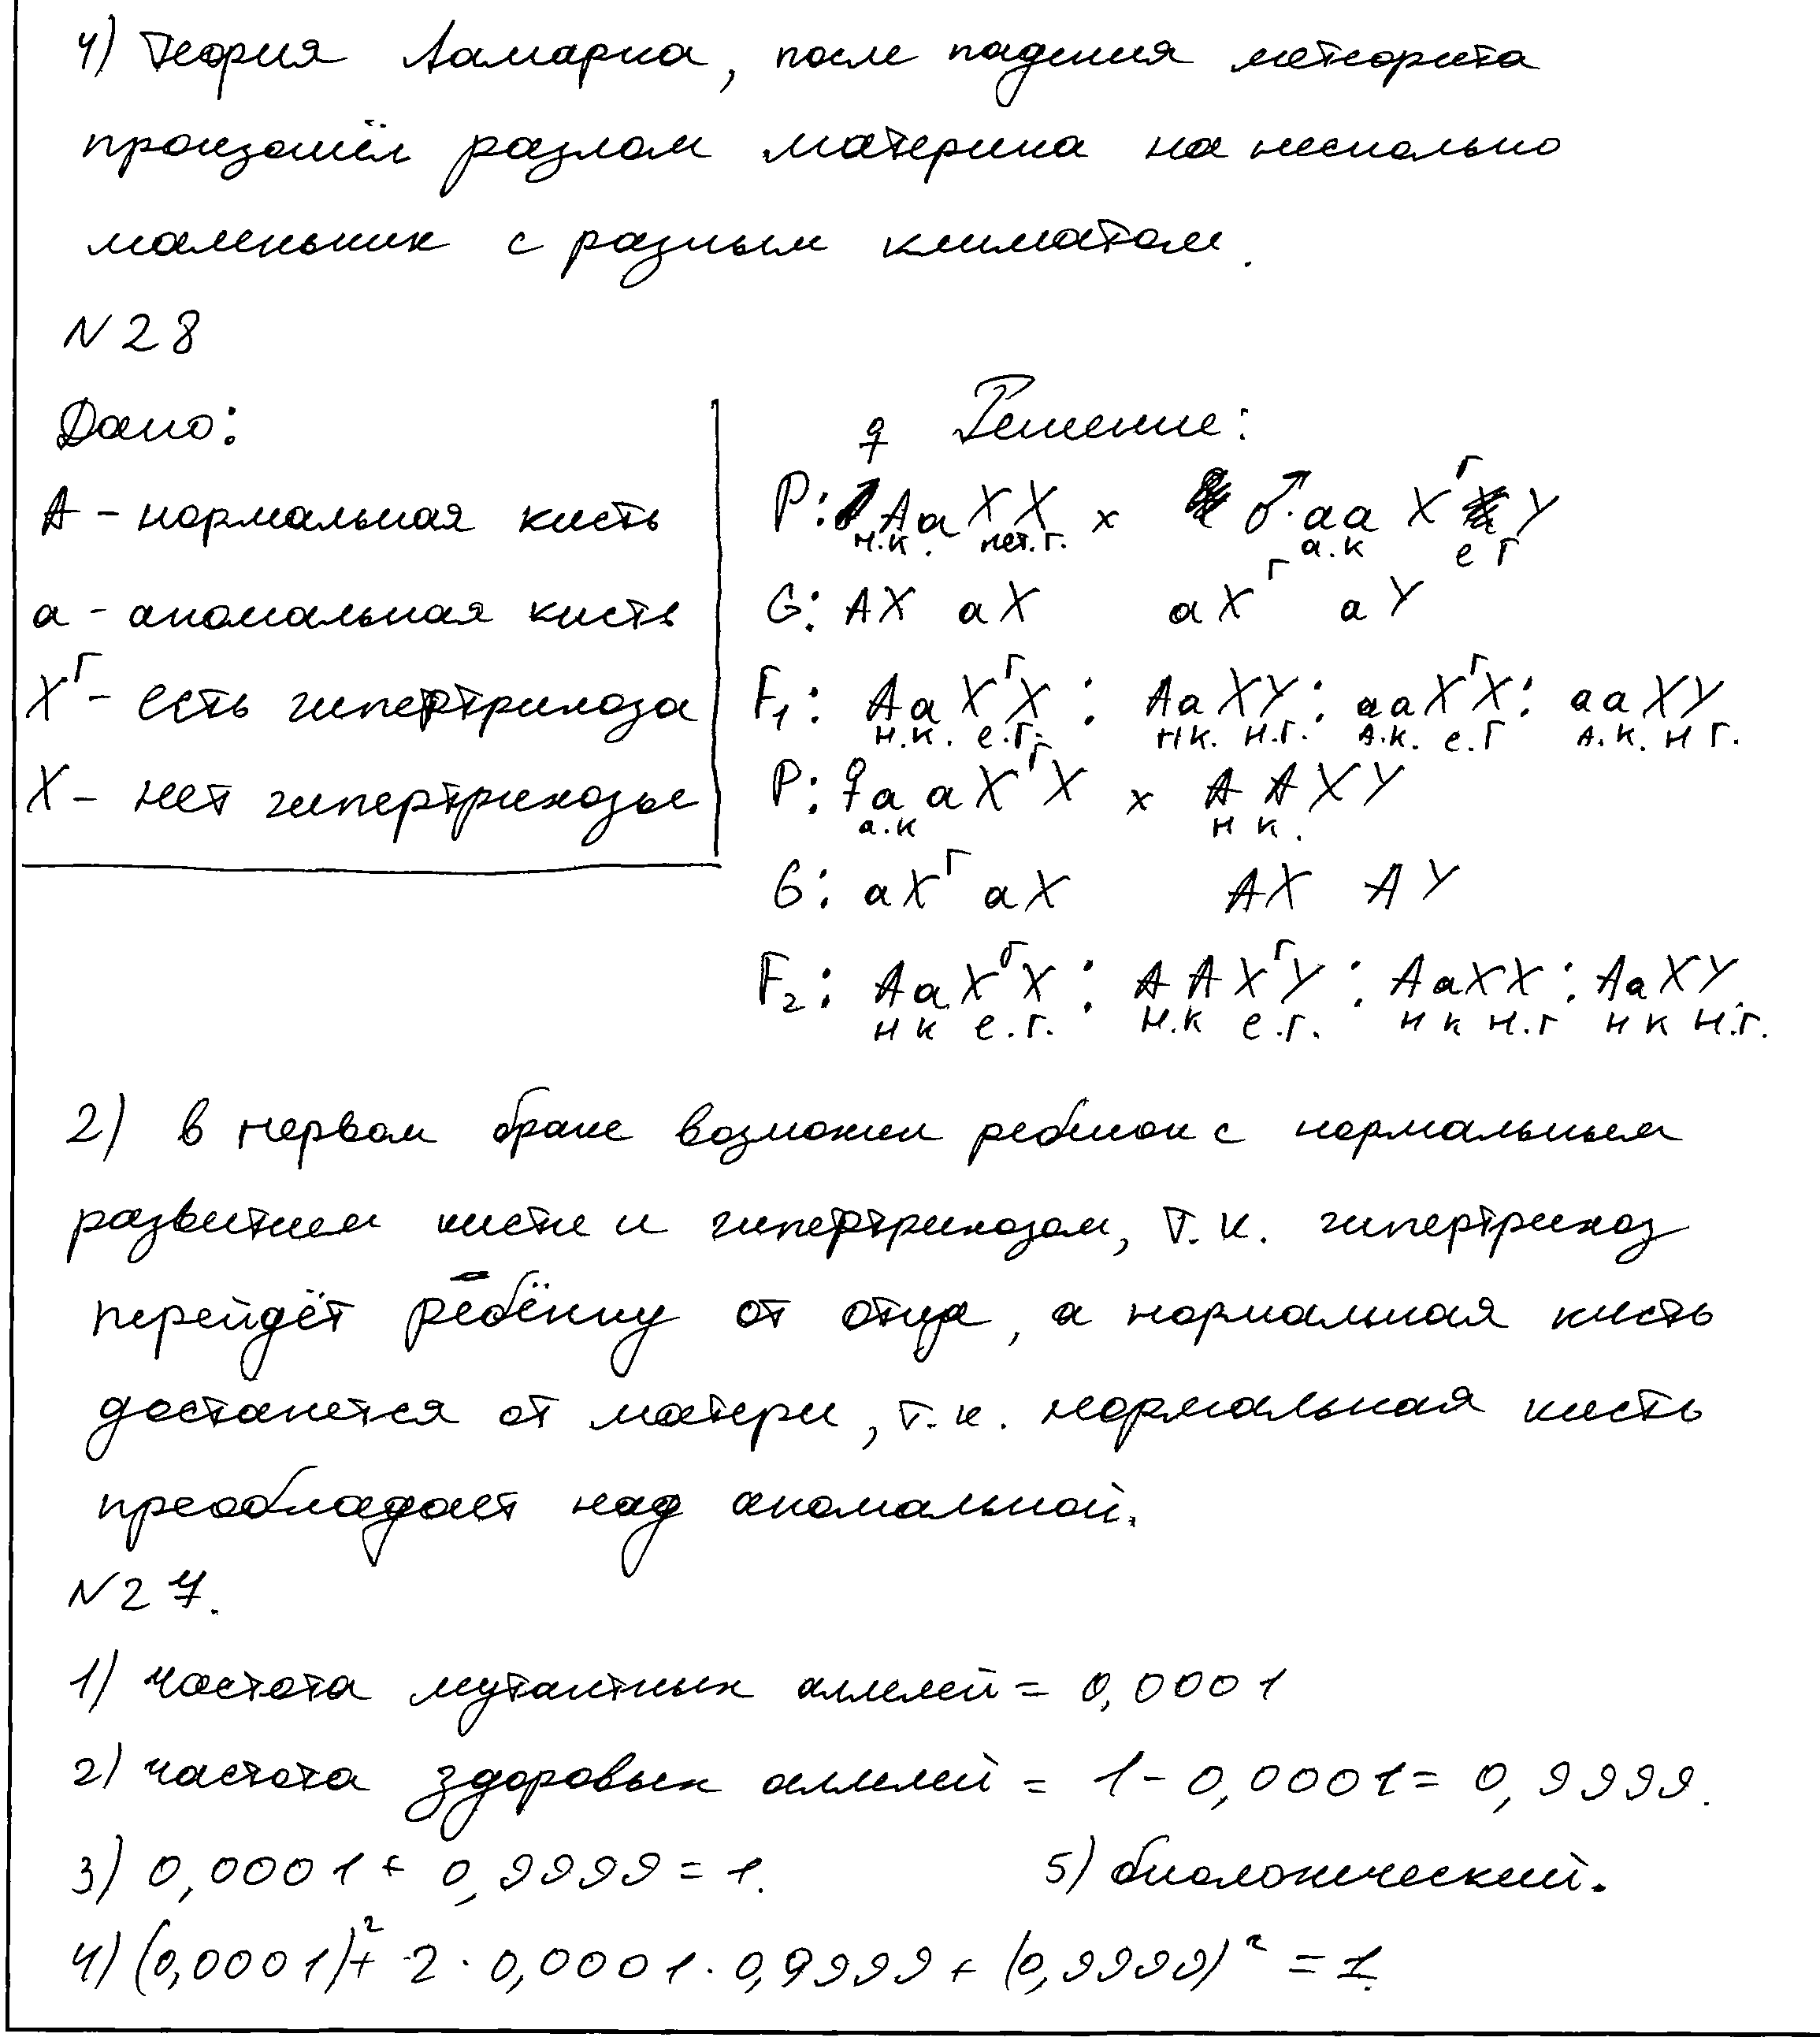 4) Теория Ламарка, после падения метеорита
произошёл разлом материка на несколько
маленьких с разным климатом.
N28
Дано:
А - нормальная кисть
а - аномальная кисть
Xᴦ - есть гипертрихоза
X - нет гипертрихозы
♀ Решение:
P: Aa XX x ♂ aa XᴦY
н.к. нет.г. а.к е г
G: AX aX aXᴦ aY
F₁: AaXᴦX : AaXY : aaXᴦX : aaXY
н.к. е.г. нк. н.г. А.к. е.г А.к. н г.
P: ♀aaXᴦX x AAXY
а.к н к.
G: aXᴦ aX AX AY
F₂: AaXᴦX : AAXᴦY : AaXX : AaXY.
н к е.г. н.к е.г. н к н.г н к н.г.
2) в первом браке возможен ребенок с нормальным
развитием кисти и гипертрихозом, т.к. гипертрихоз
перейдёт ребёнку от отца, а нормальная кисть
достанется от матери, т.к. нормальная кисть
преобладает над аномальной.
N27.
1) частота мутантных аллелей = 0,0001
2) частота здоровых аллелей = 1 - 0,0001 = 0,9999.
3) 0,0001 + 0,9999 = 1. 5) биологический.
4) (0,0001)² + 2 · 0,0001 · 0,9999 + (0,9999)² = 1.